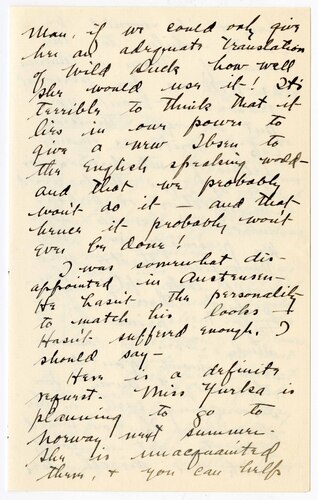 Man, if we could only give
her an adequate translation
of Wild Duck how well
she would use it! It's
terrible to think that it
lies in our power to
give a new Ibsen to
the English speaking world—
and that we probably
won't do it — and that
hence it probably won't
ever be done!
I was somewhat dis-
appointed in Austensen—
He hasn't the personality
to match his looks —
Hasn't suffered enough, I
should say—
Here is a definite
request. Miss Yurka is
planning to go to
Norway next summer.
She is unacquainted
there, & you can help